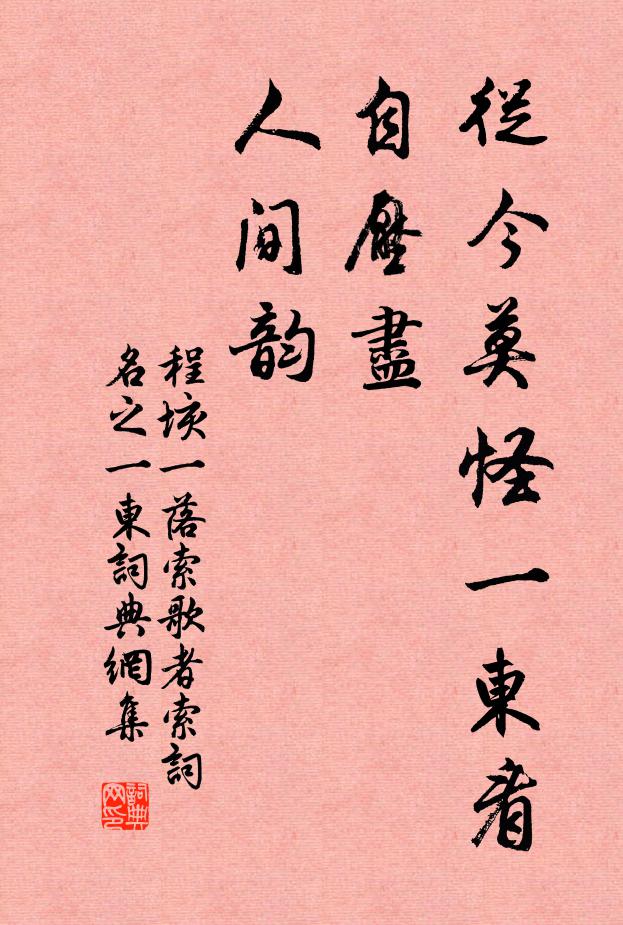 從今莫怪一東看
自壓盡
人间韵
程垓一落索歌者索詞
名之一東詞典網集
詞典
网印